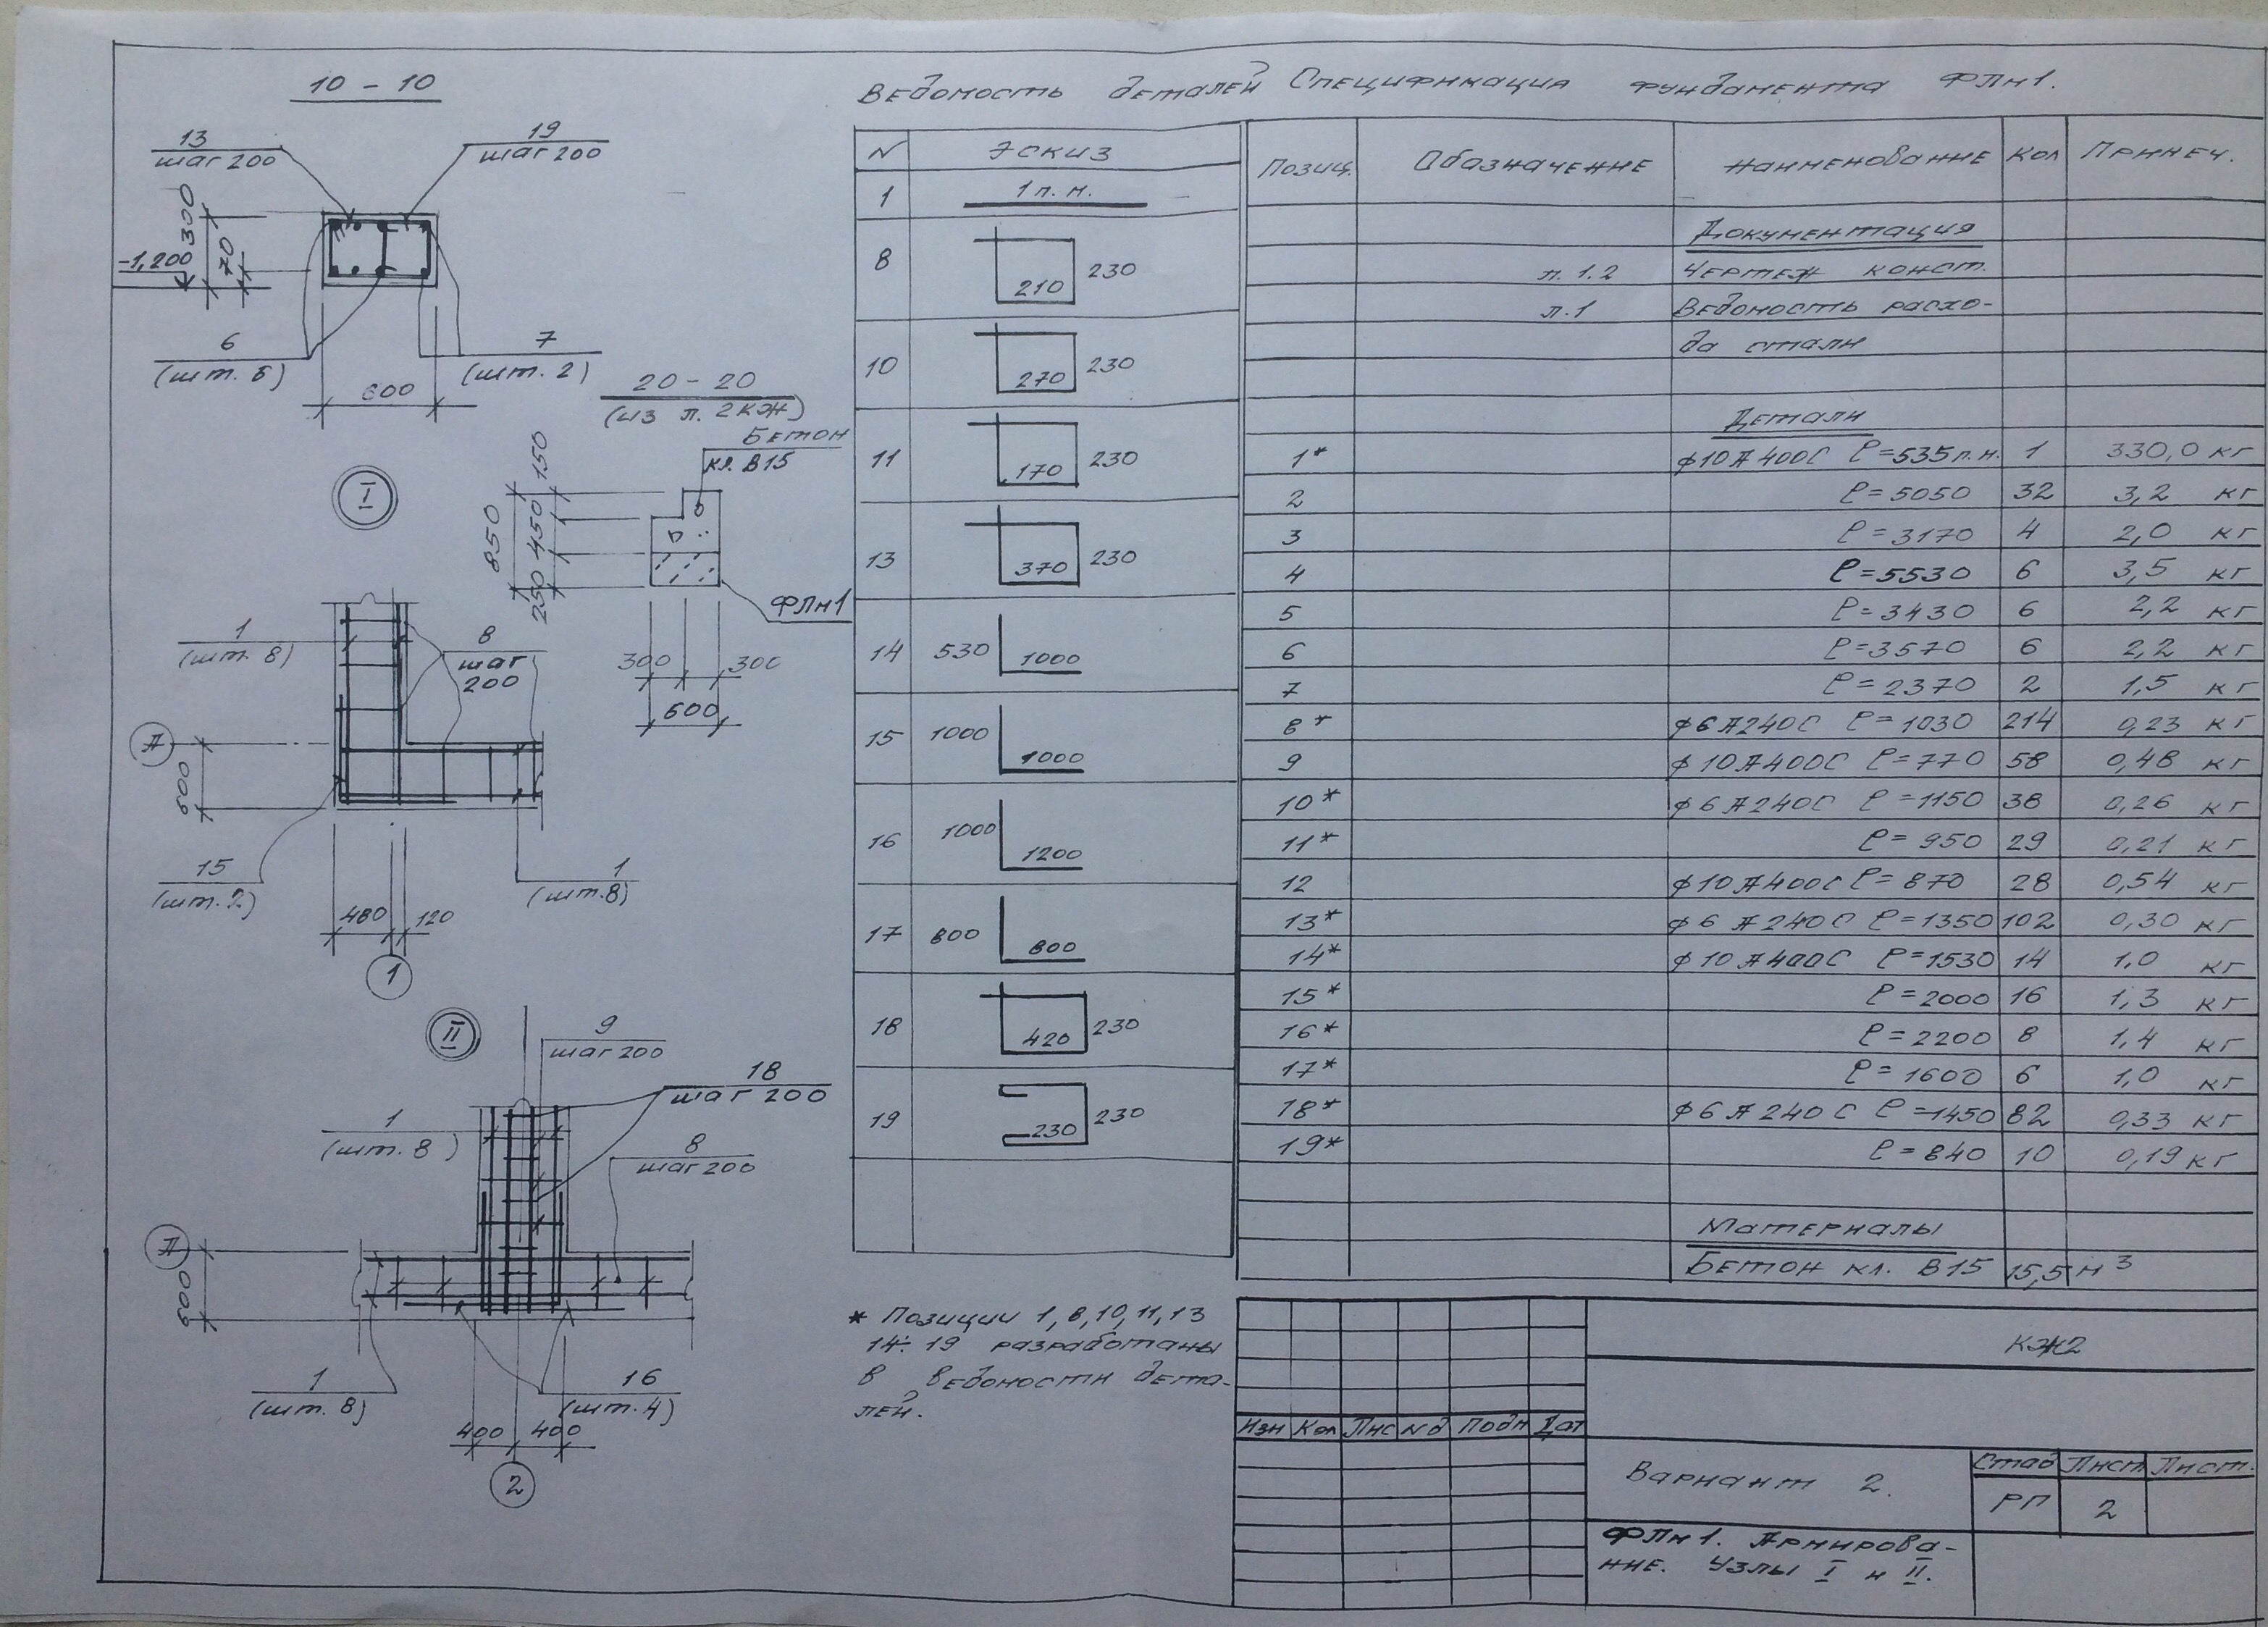 10 - 10
13
шаг 200
19
шаг 200
300
70
-1,200
6
(шт. 6)
7
(шт. 2)
600
20 - 20
(из л. 2 КЖ)
Бетон
кл. В15
150
450
250
850
ФЛм1
300
300
600
I
1
(шт. 8)
8
шаг
200
А
600
15
(шт. 2)
1
(шт. 8)
480
120
1
II
9
шаг 200
18
шаг 200
1
(шт. 8)
8
шаг 200
А
600
1
(шт. 8)
16
(шт. 4)
400
400
2
Ведомость деталей
N Эскиз
1 1 п. м.
8 210 230
10 270 230
11 170 230
13 370 230
14 530 1000
15 1000 1000
16 1000 1200
17 800 800
18 420 230
19 230 230
* Позиции 1, 8, 10, 11, 13
14÷19 разработаны
в ведомости дета-
лей.
Спецификация фундамента ФЛм1.
Позиц. Обозначение Наименование Кол Примеч.
Документация
л. 1.2 Чертеж конст.
л. 1 Ведомость расхо-
да стали
Детали
1* ф10 А400С ℓ=535 п.м. 1 330,0 кг
2 ℓ=5050 32 3,2 кг
3 ℓ=3170 4 2,0 кг
4 ℓ=5530 6 3,5 кг
5 ℓ=3430 6 2,2 кг
6 ℓ=3570 6 2,2 кг
7 ℓ=2370 2 1,5 кг
8* ф6 А240С ℓ=1030 214 0,23 кг
9 ф10 А400С ℓ=770 58 0,48 кг
10* ф6 А240С ℓ=1150 38 0,26 кг
11* ℓ=950 29 0,21 кг
12 ф10 А400С ℓ=870 28 0,54 кг
13* ф6 А240С ℓ=1350 102 0,30 кг
14* ф10 А400С ℓ=1530 14 1,0 кг
15* ℓ=2000 16 1,3 кг
16* ℓ=2200 8 1,4 кг
17* ℓ=1600 6 1,0 кг
18* ф6 А240С ℓ=1450 82 0,33 кг
19* ℓ=840 10 0,19 кг
Материалы
Бетон кл. В15 15,5 м³
КЖ2
Изм Кол Лис Nд Подп Дат
Вариант 2.
Стад Лист Лист.
РП 2
ФЛм1. Армирова-
ние. Узлы I и II.